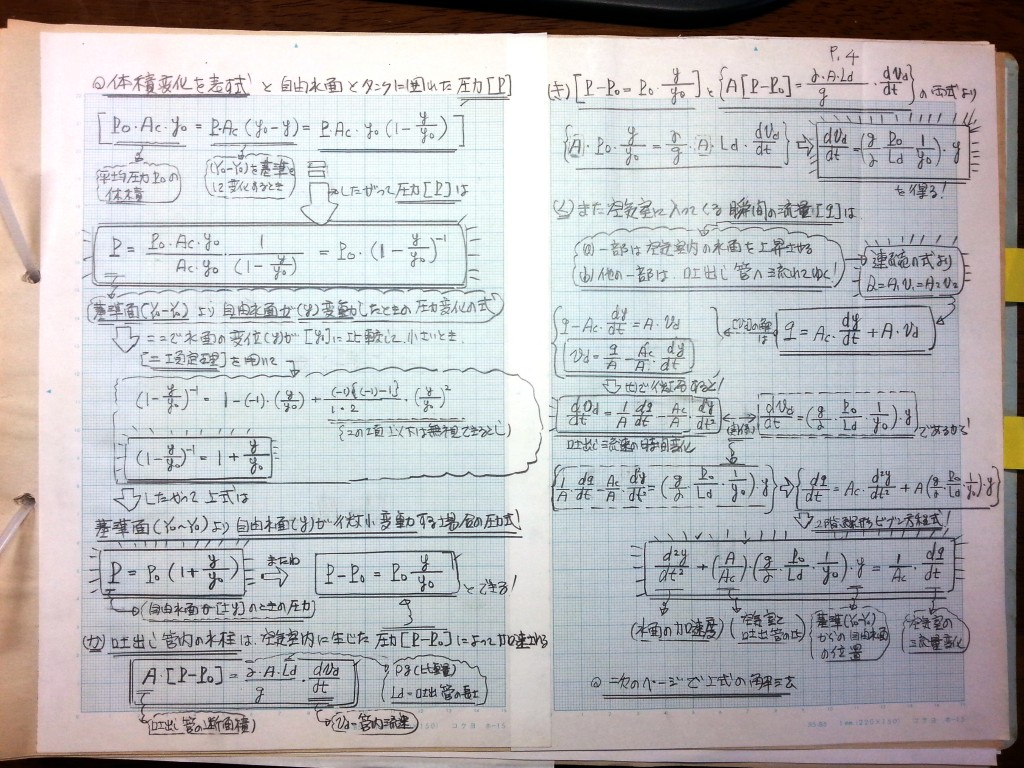 ◎体積変化を表す式 と 自由水面とタンクに囲れた圧力[P]
[P₀・Ac・y₀ = P・Ac(y₀-y) = P・Ac・y₀(1-y/y₀)]
平均圧力P₀の体積
(Y₀-Y₀)を基準として変化するとき
したがって圧力[P]は
P = P₀・Ac・y₀/Ac・y₀ ・ 1/(1-y/y₀) = P₀・(1-y/y₀)⁻¹
基準面(Y₀-Y₀)より自由水面が(y)変動したときの圧力変化の式
ここで水面の変位(y)が[y₀]に比較して小さいとき
[二項定理]を用いて
(1-y/y₀)⁻¹ = 1-(-1)・(y/y₀) + (-1){(-1)-1}/1・2 ・(y/y₀)²
(この項以下は無視できるとし)
(1-y/y₀)⁻¹ = 1 + y/y₀
したがって上式は
基準面(Y₀~Y₀)より自由水面(y)が微小変動する場合の圧力式!
P = P₀(1+y/y₀) または P-P₀ = P₀ y/y₀ とできる!
(自由水面が[±y]のときの圧力)
(カ) 吐出し管内の水柱は、空気室内に生じた圧力[P-P₀]によって加速される
A・[P-P₀] = γ・A・Ld/g ・ dVd/dt
ρg(比重量)
Ld=吐出管の長さ
(吐出し管の断面積)
Vd=管内流速
P.4
(キ) [P-P₀ = P₀・y/y₀] と {A[P-P₀] = γ・A・Ld/g ・ dVd/dt} の両式より
{A・P₀・y/y₀ = γ/g・A・Ld・dVd/dt} ⇨ dVd/dt = (g/γ P₀/Ld 1/y₀)・y
を得る!
(ク) また空気室に入ってくる瞬間の流量[q]は
(a) 一部は空気室内の水面を上昇させる
(b) 他の一部は、吐出し管へ流れてゆく!
連続の式より
Q=A₁V₁=A₂V₂
q = Ac・dy/dt + A・Vd
q-Ac・dy/dt = A・Vd
Vd = q/A - Ac/A・dy/dt
tで微分すると!
dVd/dt = 1/A dq/dt - Ac/A・d²y/dt² dVd/dt = (g/γ・P₀/Ld・1/y₀)・y であるから
吐出し流速の時間変化
{1/A dq/dt - Ac/A・d²y/dt² = (g/γ P₀/Ld・1/y₀)・y} ⇨ {dq/dt = Ac・d²y/dt² + A(g/γ・P₀/Ld・1/y₀)・y}
2階線形ビブン方程式!
d²y/dt² + (A/Ac)・(g/γ・P₀/Ld・1/y₀)・y = 1/Ac・dq/dt
(水面の加速度)
(空気室と吐出管の比)
基準(Y₀-Y₀)からの自由水面の位置
空気室の流量変化
◎次のページで上式の解法